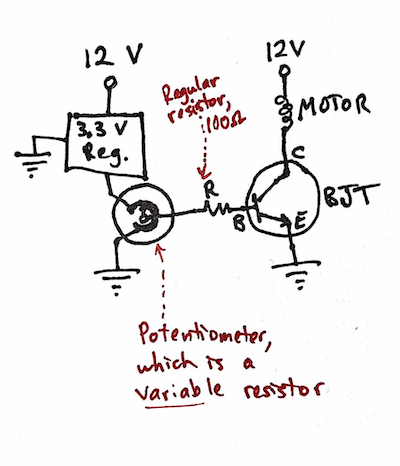 12 V
12V
3.3 V
Reg.
Regular
resistor,
100Ω
MOTOR
C
R
B
E
BJT
Potentiometer,
which is a
variable resistor